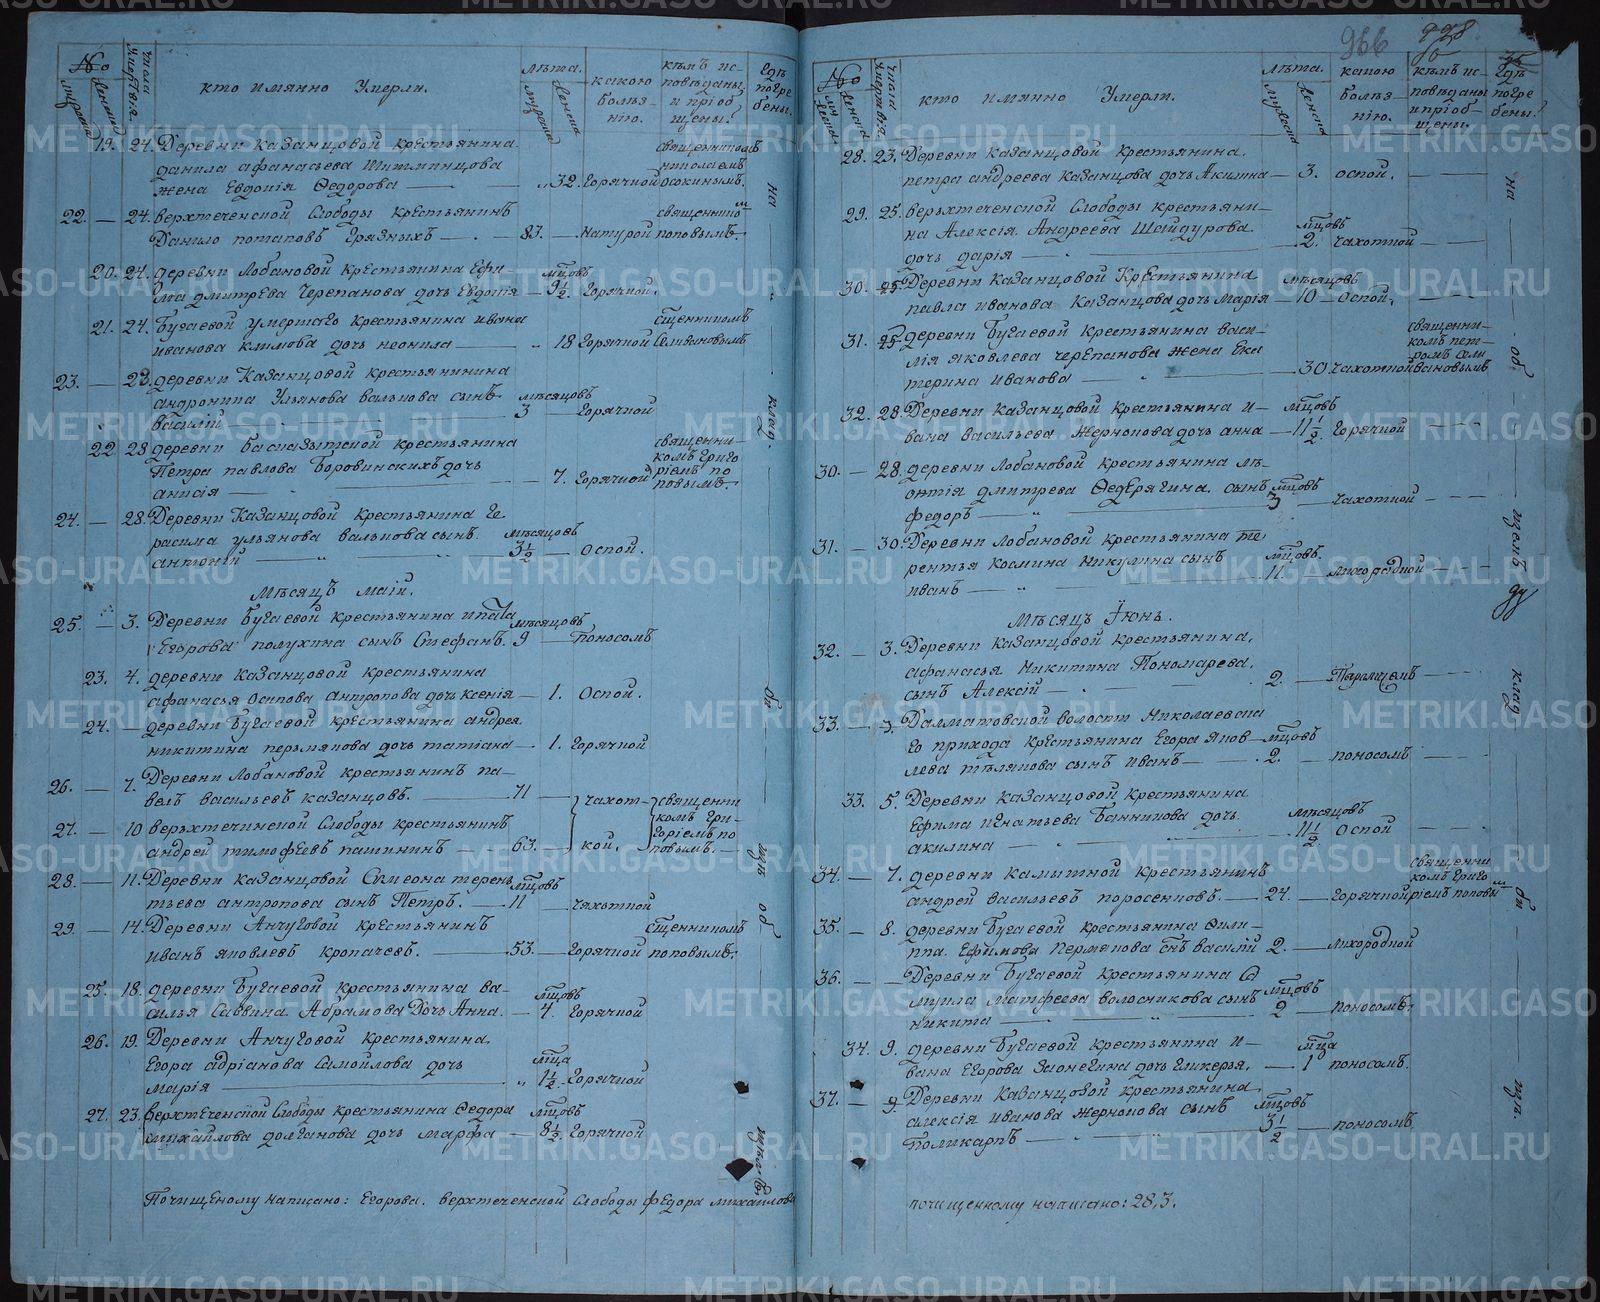 №
мужеска
женска
числа умертвія.
кто имянно Умерли.
лѣта.
мужеска
женска
какою болѣзнію.
кѣмъ исповѣданы и пріобщены?
Гдѣ погребены.
19. 24. Деревни Казанцовой крестьянина
данила афанасьева
жена Евдокія Ѳедорова — „ 32. Горячкой
священникомъ
николаемъ
Осокинымъ.
22. — 24. верхтеченской Слободы крестьянинъ
Данило потаповъ Грязныхъ — 83. — Натурой
священником
поповымъ.
20. 24. деревни Лобановой крестьянина Ефи-
ма дмитрева Черепанова дочь Евдокія — мцовъ 9½. Горячкой.
21. 24. Бугаевой умершаго крестьянина ивана
иванова климова дочь неонила — „ 18 Горячкой
сщенникомъ
Селивановымъ
23. — 28. деревни Казанцовой крестьянинина
андроника Ульянова валькова сынъ
василій — мѣсяцовъ 3 — Горячкой
22 28 деревни
Петра павлова Боровинскихъ дочь
анисія — 7. Горячкой
священни-
комъ Григо
ріемъ по
повымъ.
24. — 28. Деревни Казанцовой крестьянина Ге-
расима ульянова валькова сынъ.
антоній — мѣсяцовъ 3½ — Оспой.
Мѣсяцъ маій.
25. — 3. Деревни Бугаевой крестьянина ипата
Егорова полухина сынъ Стефанъ. мѣсяцовъ 9 — Поносомъ
23. 4. деревни Казанцовой крестьянина
афанасья Осипова Антропова дочь Ксенія — 1. Оспой.
24. — деревни Бугаевой крестьянина андрея
никитина пермякова дочь татіана — 1. Горячкой
26. — 7. Деревни Лобановой крестьянинъ па-
велъ васильевъ казанцовъ. — 71 —
27. — 10 верьхтечинской Слободы крестьянинъ
андрей тимофѣевъ пашнинъ — 63. —
чахот-
кой.
священни
комъ Гри-
горіемъ по
повымъ.
28. — 11. Деревни Казанцовой Симеона терень
тьева антропова сынъ Петръ. — мцовъ 11 — чяхъткой
29. — 14. Деревни Анчуговой крестьянинъ
иванъ яковлевъ кропачевъ. — 53. — Горячкой
сщенникомъ
поповымъ.
25. 18. деревни Бугаевой крестьянина ва-
силья Саввина Абрамова Дочь Анна. — мцовъ 4. Горячкой
26. 19. Деревни Анчуговой Крестьянина.
Егора адріанова Самойлова дочь
марія — мца „ 1½. Горячкой
27. 23. верхтеченской Слободы крестьянина Ѳедора
михайлова долганова дочь марфа — мцовъ 8½. Горячкой
на
клад
би
щѣ
об
щемъ
Почищеному написано: Егорова. верхтеченской Слободы федора михаилова
966
928
№
мужеска
женска
числа умертвія.
кто имянно Умерли.
лѣта.
мужеска
женска
какою болѣзнію.
кѣмъ исповѣданы и пріобщены.
Гдѣ погребены?
28. 23. Деревни Казанцовой крестьянина.
петра андреева Казанцова дочь Акилина — 3. оспой.
29. 25. верьхтеченской Слободы крестьяни-
на Алексія Андреева Шайдурова
дочь дарія — мцовъ 2. чахоткой
30. 25. Деревни Казанцовой Крестьянина
павла иванова Казанцова дочь Марія — мѣсяцовъ 10 Оспой.
31. 25. деревни Бугаевой Крестьянина васи-
лія яковлева черепанова жена Ека
терина иванова — 30 чахоткой
священни-
комъ пет-
ромъ сели
вановымъ
32. 28. Деревни Казанцовой крестьянина и-
вана васильева Жернокова дочь анна — мцовъ 11½. Горячкой
30. — 28. деревни Лобановой Крестьянина лѣ-
онтія дмитрева Ѳедерягина. сынъ
федоръ — мцовъ 3 — чахоткой
31. — 30. Деревни Лобановой крестьянина те
рентья Космина Никулина сынъ
иванъ — мцовъ. 11. — лихорадкой
Мѣсяцъ Їюнь.
32. — 3. Деревни Казанцовой крестьянина,
афанасья Никитина Пономарева.
сынъ Алексій — 2. — Параличемъ
33. — 3. Далматовской волости Николаевска
го прихода крестьянина Егора яков-
лева сынъ иванъ — мцовъ 2. — поносомъ
33. 5. Деревни Казанцовой крестьянина
Ефима игнатьева Банникова дочь
акилина — мѣсяцовъ 11½ Оспой
34. — 7. деревни камышной крестьянинъ
андрей васильевъ поросенковъ. — 24. — Горячкой
священни
комъ Григо
ріемъ поповым
35. — 8. деревни Бугаевой крестьянина Фили-
ппа. Ефимова Пермякова снъ василій 2. — лихорадкой
36. — — Деревни Бугаевой крестьянина Са
муила матфеева волосникова сынъ
никита — мцовъ 2 — поносомъ.
34. 9. деревни Бугаевой крестьянина и-
вана Егорова дочь гликерья. — мца 1 поносомъ.
37. — 9. Деревни Казанцовой крестьянина,
алексія иванова жернокова сынъ
Поликарпъ — мцовъ 3½ — поносомъ
на
об
щемъ
клад
би
щи.
почищенному написано: 28, 3.
METRIKI.GASO-URAL.RU